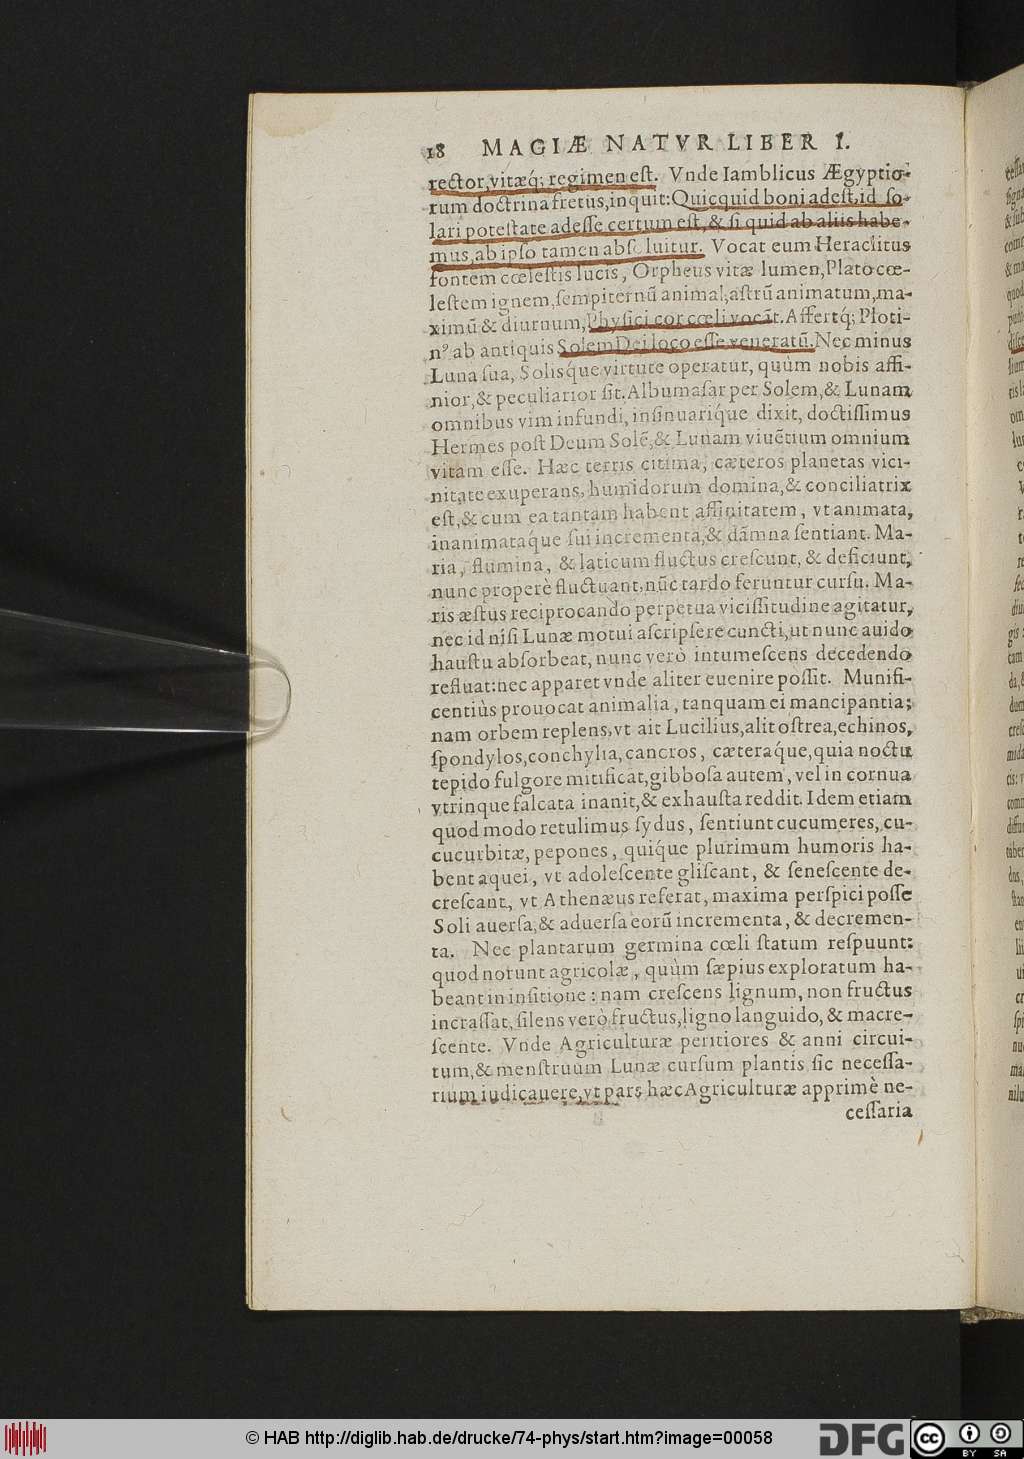 18 MAGIÆ NATVR LIBER I.
rector, vitæq́; regimen eſt. Vnde Iamblicus Ægyptio-
rum doctrina fretus, inquit: Quicquid boni adeſt, id ſo-
lari poteſtate adeſſe certum eſt, & ſi quid ab aliis habe-
mus, ab ipſo tamen abſoluitur. Vocat eum Heraclitus
fontem cœleſtis lucis, Orpheus vitæ lumen, Plato cœ-
leſtem ignem, ſempiternū animal, aſtrū animatum, ma-
ximū & diurnum, Phyſici cor cœli vocāt. Affertq́; Ploti-
nꝰ ab antiquis Solem Dei loco eſſe veneratū. Nec minus
Luna ſua, Solisq́ue virtute operatur, quùm nobis affi-
nior, & peculiarior ſit. Albumaſar per Solem, & Lunam
omnibus vim infundi, inſinuariq́ue dixit, doctiſſimus
Hermes poſt Deum Solē, & Lunam viuētium omnium
vitam eſſe. Hæc terris citima, cæteros planetas vici-
nitate exuperans, humidorum domina, & conciliatrix
eſt, & cum ea tantam habent affinitatem, vt animata,
inanimataq́ue ſui incrementa, & dāmna ſentiant. Ma-
ria, flumina, & laticum fluctus creſcunt, & deficiunt,
nunc properè fluctuant, nūc tardo feruntur curſu. Ma-
ris æſtus reciprocando perpetua viciſſitudine agitatur,
nec id niſi Lunæ motui aſcripſere cuncti, ut nunc auido
hauſtu abſorbeat, nunc verò intumeſcens decedendo
refluat: nec apparet vnde aliter euenire poſſit. Munifi-
centiùs prouocat animalia, tanquam ei mancipantia;
nam orbem replens, vt ait Lucilius, alit oſtrea, echinos,
ſpondylos, conchylia, cancros, cæteraq́ue, quia noctu
tepido fulgore mitificat, gibboſa autem, vel in cornua
vtrinque falcata inanit, & exhauſta reddit. Idem etiam
quod modo retulimus ſydus, ſentiunt cucumeres, cu-
cucurbitæ, pepones, quiq́ue plurimum humoris ha-
bent aquei, vt adoleſcente gliſcant, & ſeneſcente de-
creſcant, vt Athenæus referat, maxima perſpici poſſe
Soli auerſa, & aduerſa eorū incrementa, & decremen-
ta. Nec plantarum germina cœli ſtatum reſpuunt:
quod norunt agricolæ, quùm ſæpius exploratum ha-
beant in inſitione: nam creſcens lignum, non fructus
incraſſat, ſilens verò fructus, ligno languido, & macre-
ſcente. Vnde Agriculturæ peritiores & anni circui-
tum, & menſtruum Lunæ curſum plantis ſic neceſſa-
rium iudicauere, vt pars hæc Agriculturæ apprimè ne-
ceſſaria
© HAB http://diglib.hab.de/drucke/74-phys/start.htm?image=00058
DFG
cc BY SA